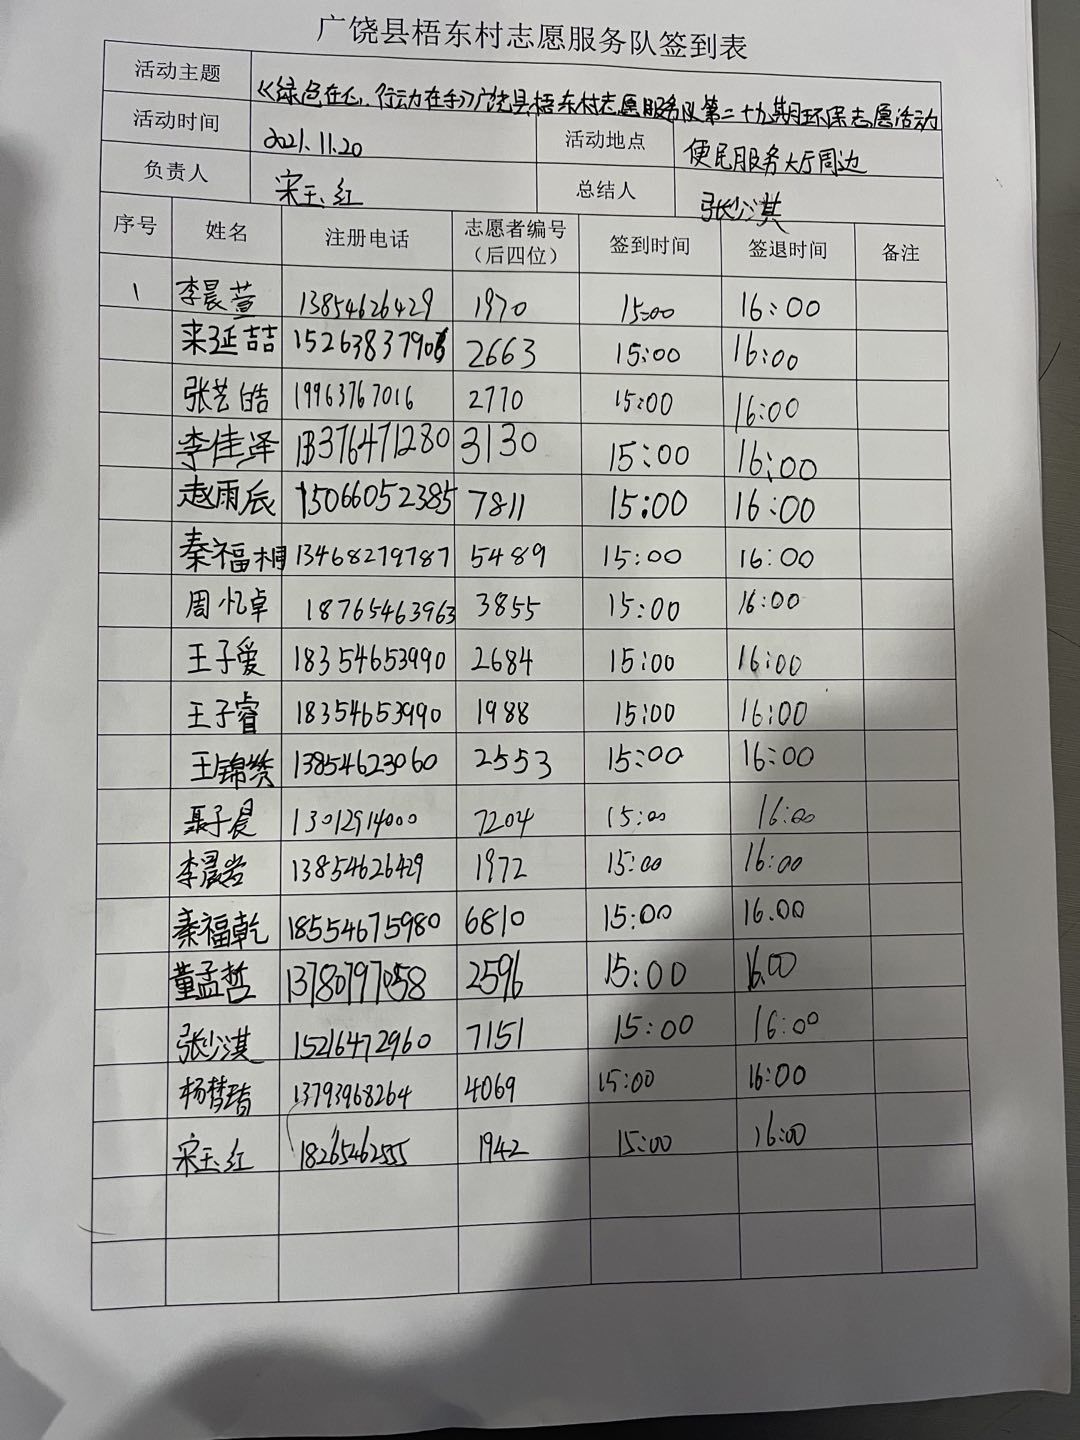 广饶县梧东村志愿服务队签到表
活动主题 《绿色在心，行动在手》广饶县梧东村志愿服务队第二十九期环保志愿活动
活动时间 2021.11.20 活动地点 便民服务大厅周边
负责人 宋玉红 总结人 张少淇
序号 姓名 注册电话 志愿者编号（后四位） 签到时间 签退时间 备注
1 李晨萱 13854626429 1970 15:00 16:00
来延喆 1526383790 2663 15:00 16:00
张艺皓 19963767016 2770 15:00 16:00
李佳泽 13376471280 3130 15:00 16:00
赵雨辰 15066052385 7811 15:00 16:00
秦福桐 13468279787 5489 15:00 16:00
周忆卓 18765463963 3855 15:00 16:00
王子爱 18354653990 2684 15:00 16:00
王子睿 18354653990 1988 15:00 16:00
王锦绣 13854623060 2553 15:00 16:00
聂子晨 13012914000 7204 15:00 16:00
李晨岩 13854626429 1972 15:00 16:00
秦福乾 18554675980 6810 15:00 16.00
董孟哲 13780797058 2596 15:00 16.00
张少淇 15216472960 7151 15:00 16:00
杨梦瑶 13793968264 4069 15:00 16:00
宋玉红 18265462555 1942 15:00 16:00